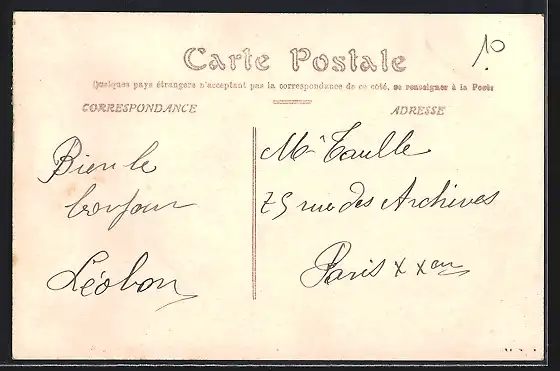 10
Carte Postale
Quelques pays étrangers n'acceptant pas la correspondance de ce côté, se renseigner à la Poste
CORRESPONDANCE
ADRESSE
Bien le
bonjour
Léobon
Mr Taulle
75 rue des Archives
Paris